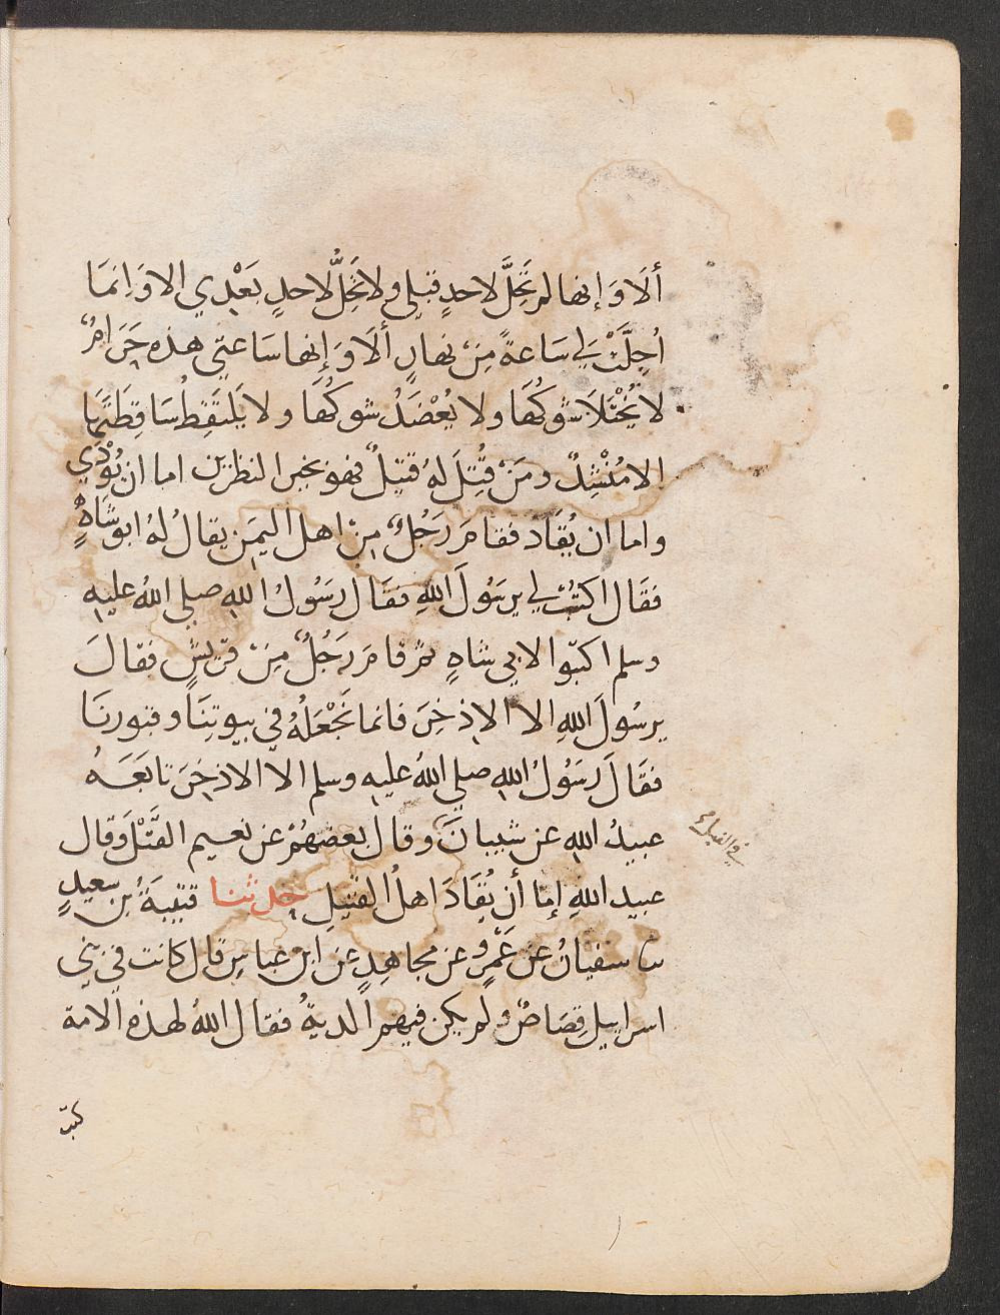 ألَا وَإنها لم تَحِلَّ لاحدٍ قبلي ولا تَحِلُّ لاحدٍ بَعْدِي الا وَاِنمَا
اُحِلَّتْ لِي سَاعةً مِنْ نهارٍ ألَا وَإنها سَاعتي هذه حَرَامٌ
لا يُخْتَلَا شوكُهَا ولا يُعْضَدُ شوكُهَا ولا يَلتقِطُ سَاقِطَتَهَا
الا مُنْشِدٌ ومَنْ قُتِلَ لهُ قتيلٌ فهو بخير النظرين اما ان يُوْدَي
واما ان يُقَادَ فقامَ رَجُلٌ مِنْ اهل اليمَن يقالُ لهُ ابو شاهٍ
فقَال اكتُبْ لِي يرسُولَ اللهِ فقَال رسُولُ اللهِ صلي اللهُ عليه
وسلم اكتبوا لابي شاهٍ ثم قامَ رَجُلٌ مِنْ قريشٍ فقالَ
يرسُولَ اللهِ الا الاِذخِرَ فانما نَجْعَلُهُ في بيوتِنَا وقبورنَا
فقَالَ رَسُولُ اللهِ صلي اللهُ عليه وسلم الا الاذخِرَ تابَعَهُ
عبيدُ اللهِ عن شيبانَ وقالَ بعضهُمْ عن نعيم القَتْلَ وَقال
عبيد اللهِ إمّا أن يُقَادَ اهلُ القتيلِ حدثنا قتيبَةُ بن سعيدٍ
سفيانُ عن عَمْرٍو عن مجاهدٍ عن ابن عباسٍ قال كانت في بني
اسراييل قِصَاصٌ ولم يكن فيهم الديةُ فقال اللهُ لهذه الامة
كتب
في الفيل